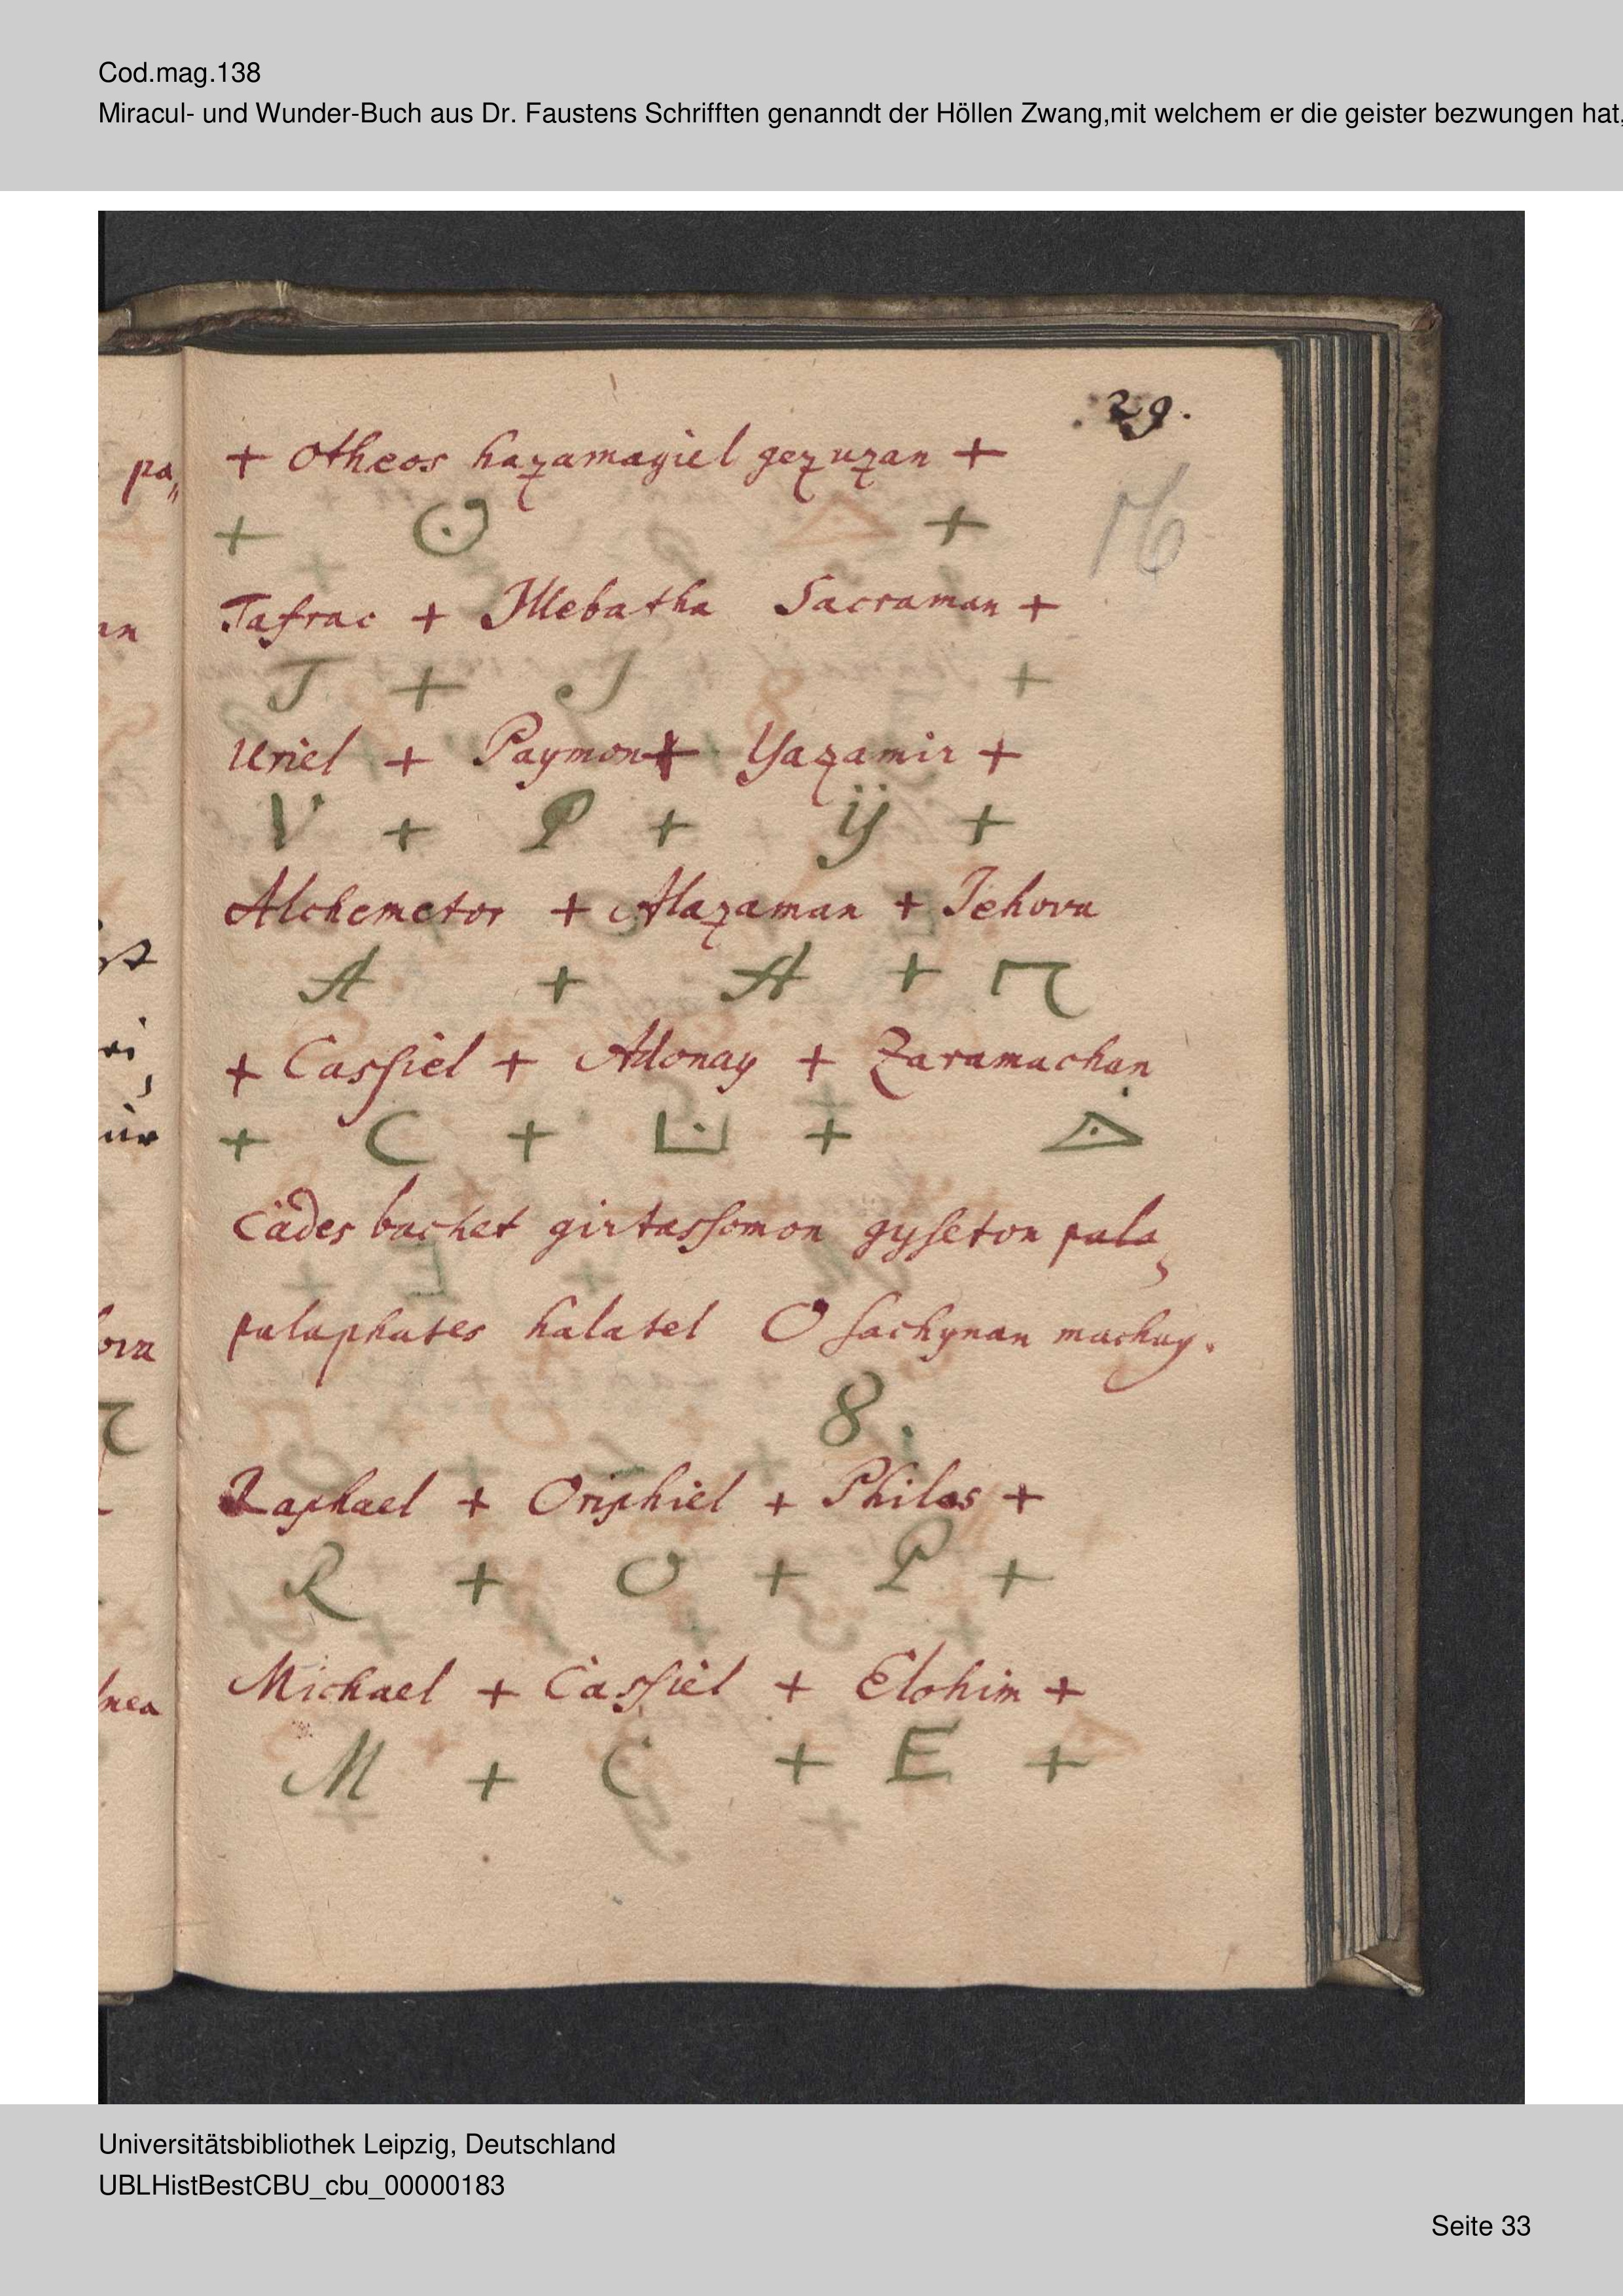 Cod.mag.138
Miracul- und Wunder-Buch aus Dr. Faustens Schrifften genanndt der Höllen Zwang,mit welchem er die geister bezwungen hat,
29.
+ Otheos hazamagiel gezuzan +
+ +
16
Tafrac + Illebatha Sacraman +
J + J +
Uriel + Paymon + Yazamir +
V + P + ÿ +
Alchemetor + Alazaman + Jehova
A + A +
+ Cassiel + Adonay + Zaramachan
+ C + +
Cades bachet girtassomon gyseton pala,
palaphates halatel O sachynan machay.
8.
Raphael + Oriphiel + Philos +
R + O + P +
Michael + Cassiel + Elohim +
M + C + E +
Universitätsbibliothek Leipzig, Deutschland
UBLHistBestCBU_cbu_00000183
Seite 33